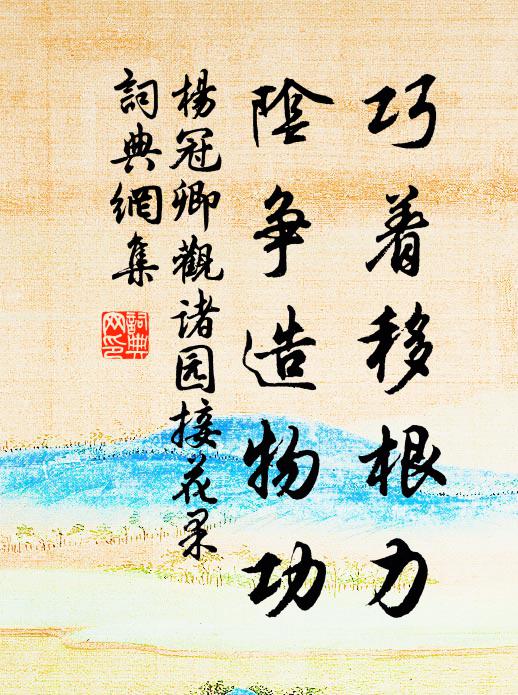 巧着移根力
陰争造物功
楊冠卿觀诸园接花果
詞典網集
詞典
网印